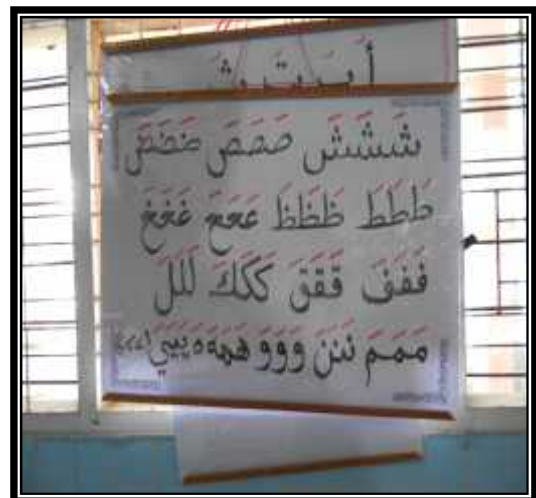 أَ بَ تَ ثَ
شَشَشَ صَصَصَ ضَضَضَ
طَطَطَ ظَظَظَ عَعَعَ غَغَغَ
فَفَفَ قَقَقَ كَكَكَ لَلَلَ
مَمَمَ نَنَنَ وَوَوَ هَهَهَ ةَ يَيَيَ